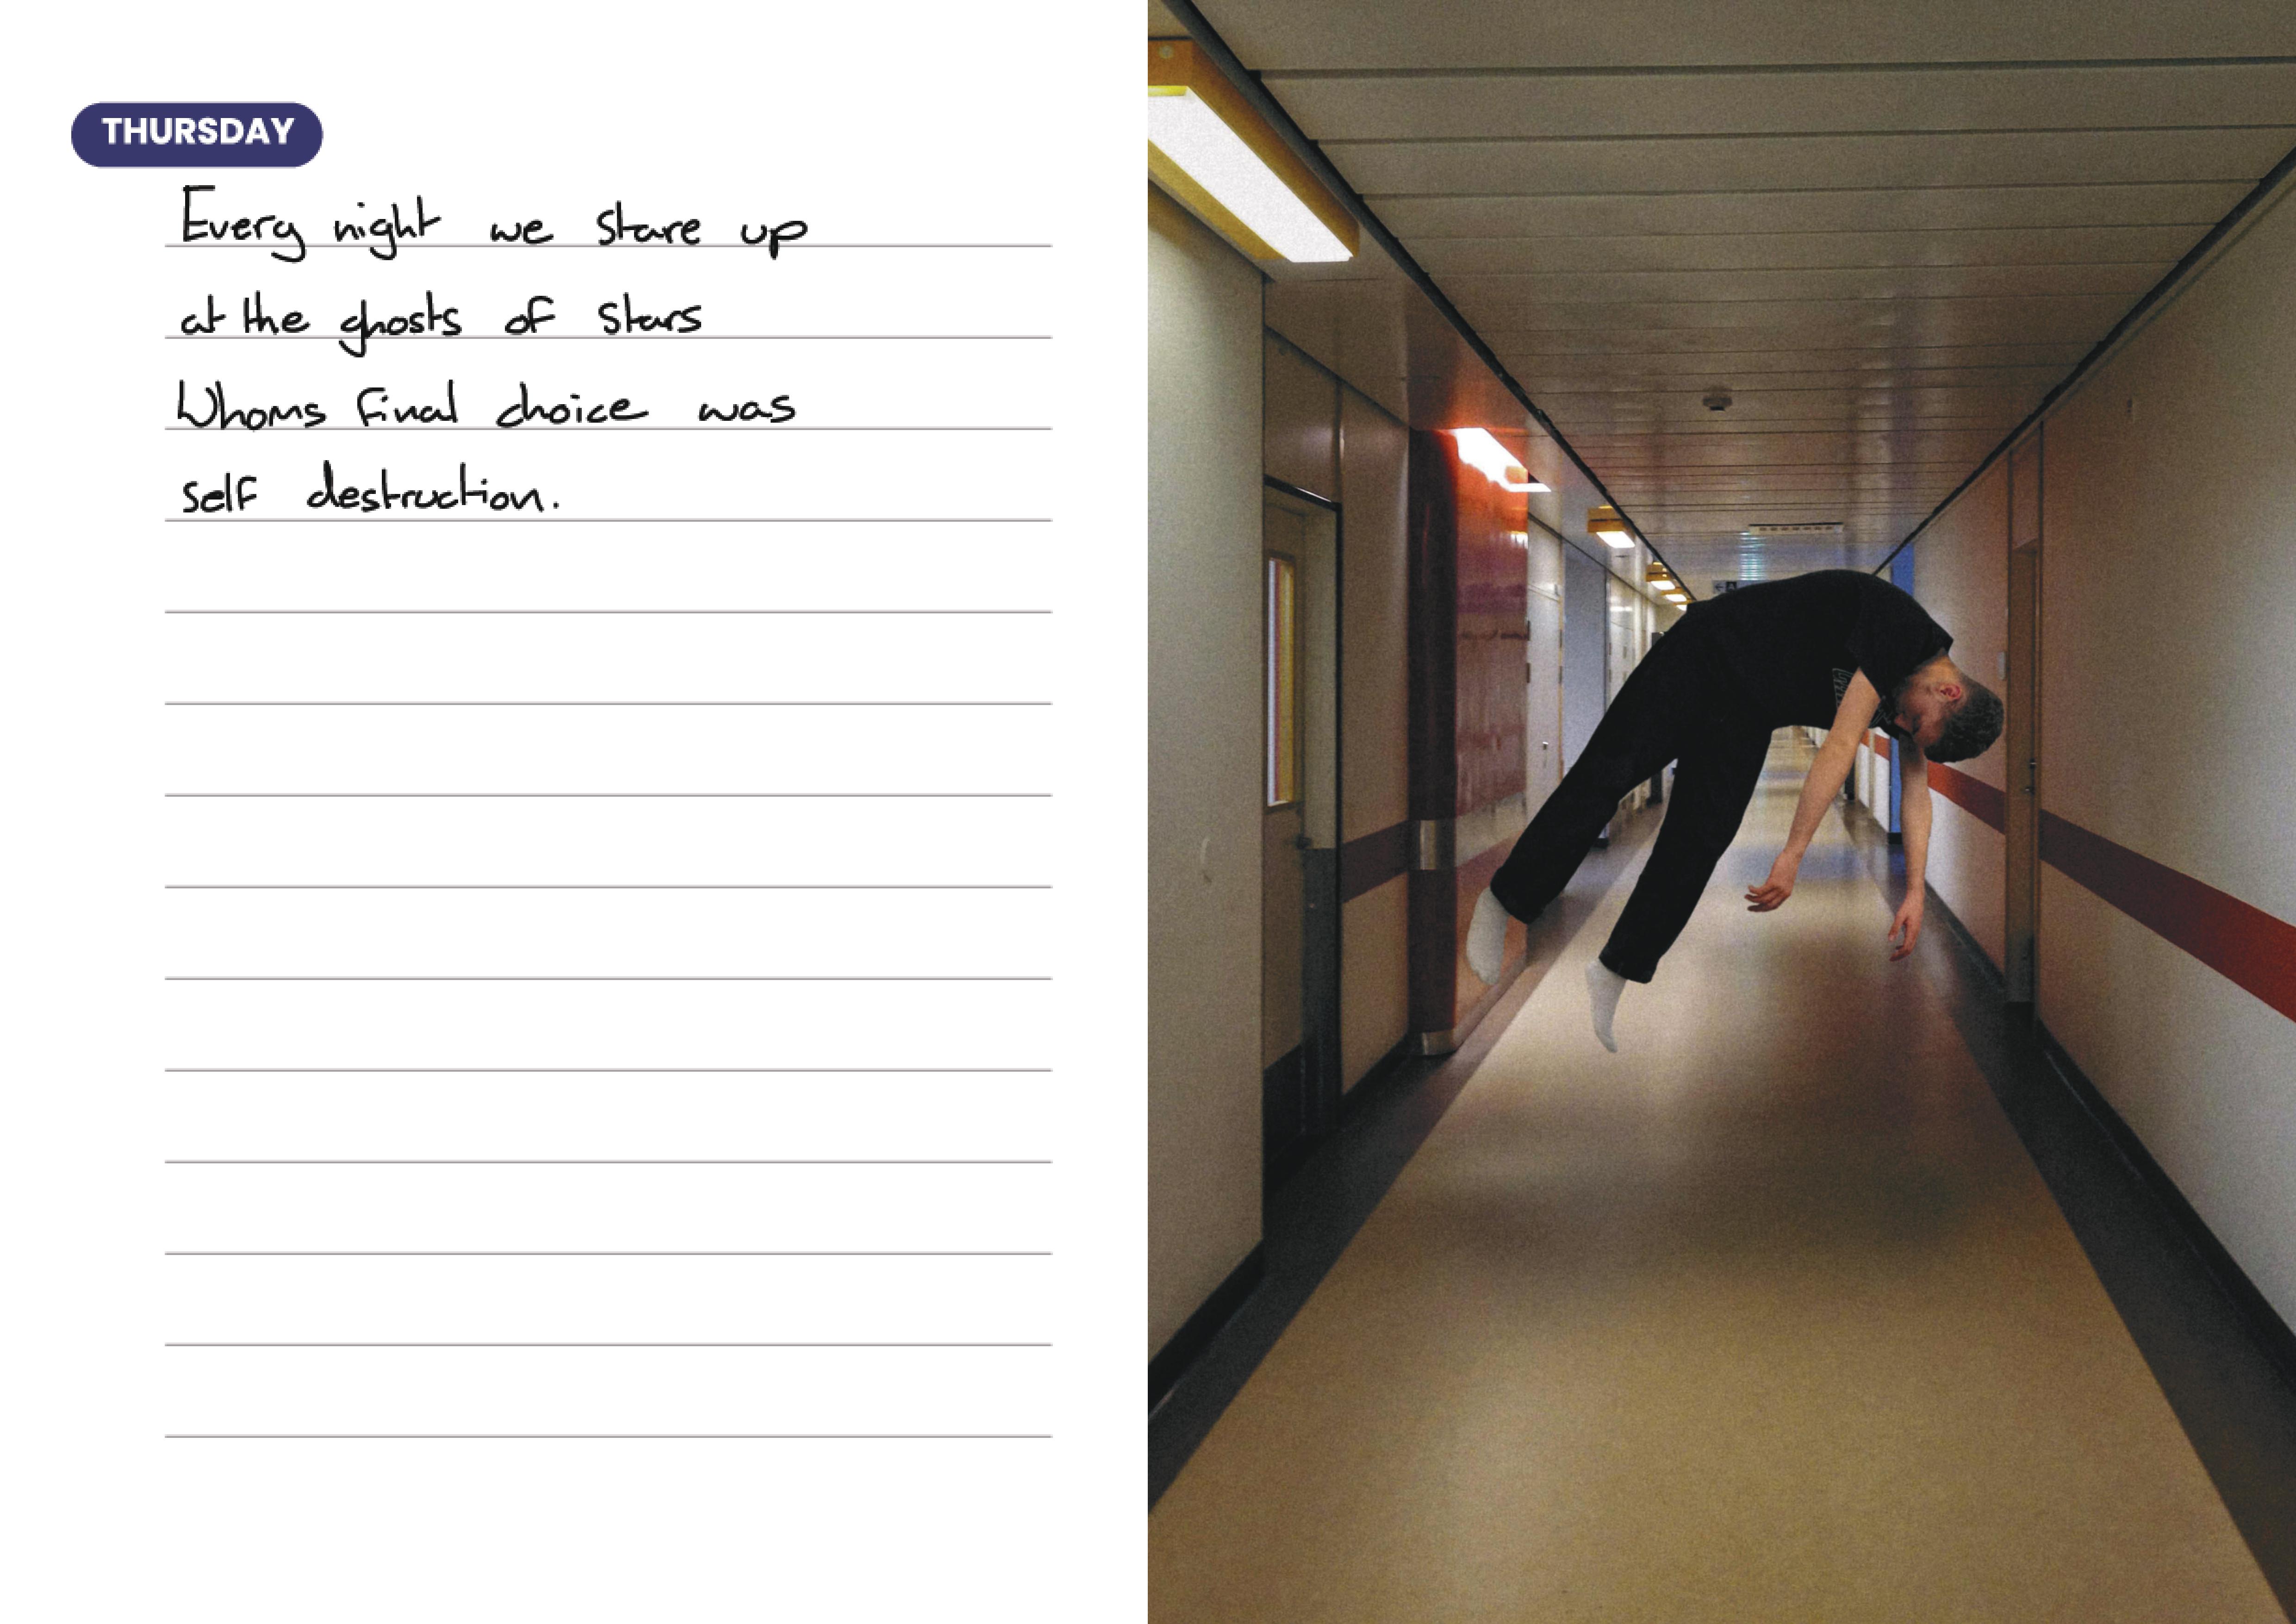 THURSDAY
Every night we stare up
at the ghosts of stars
Whoms final choice was
self destruction.